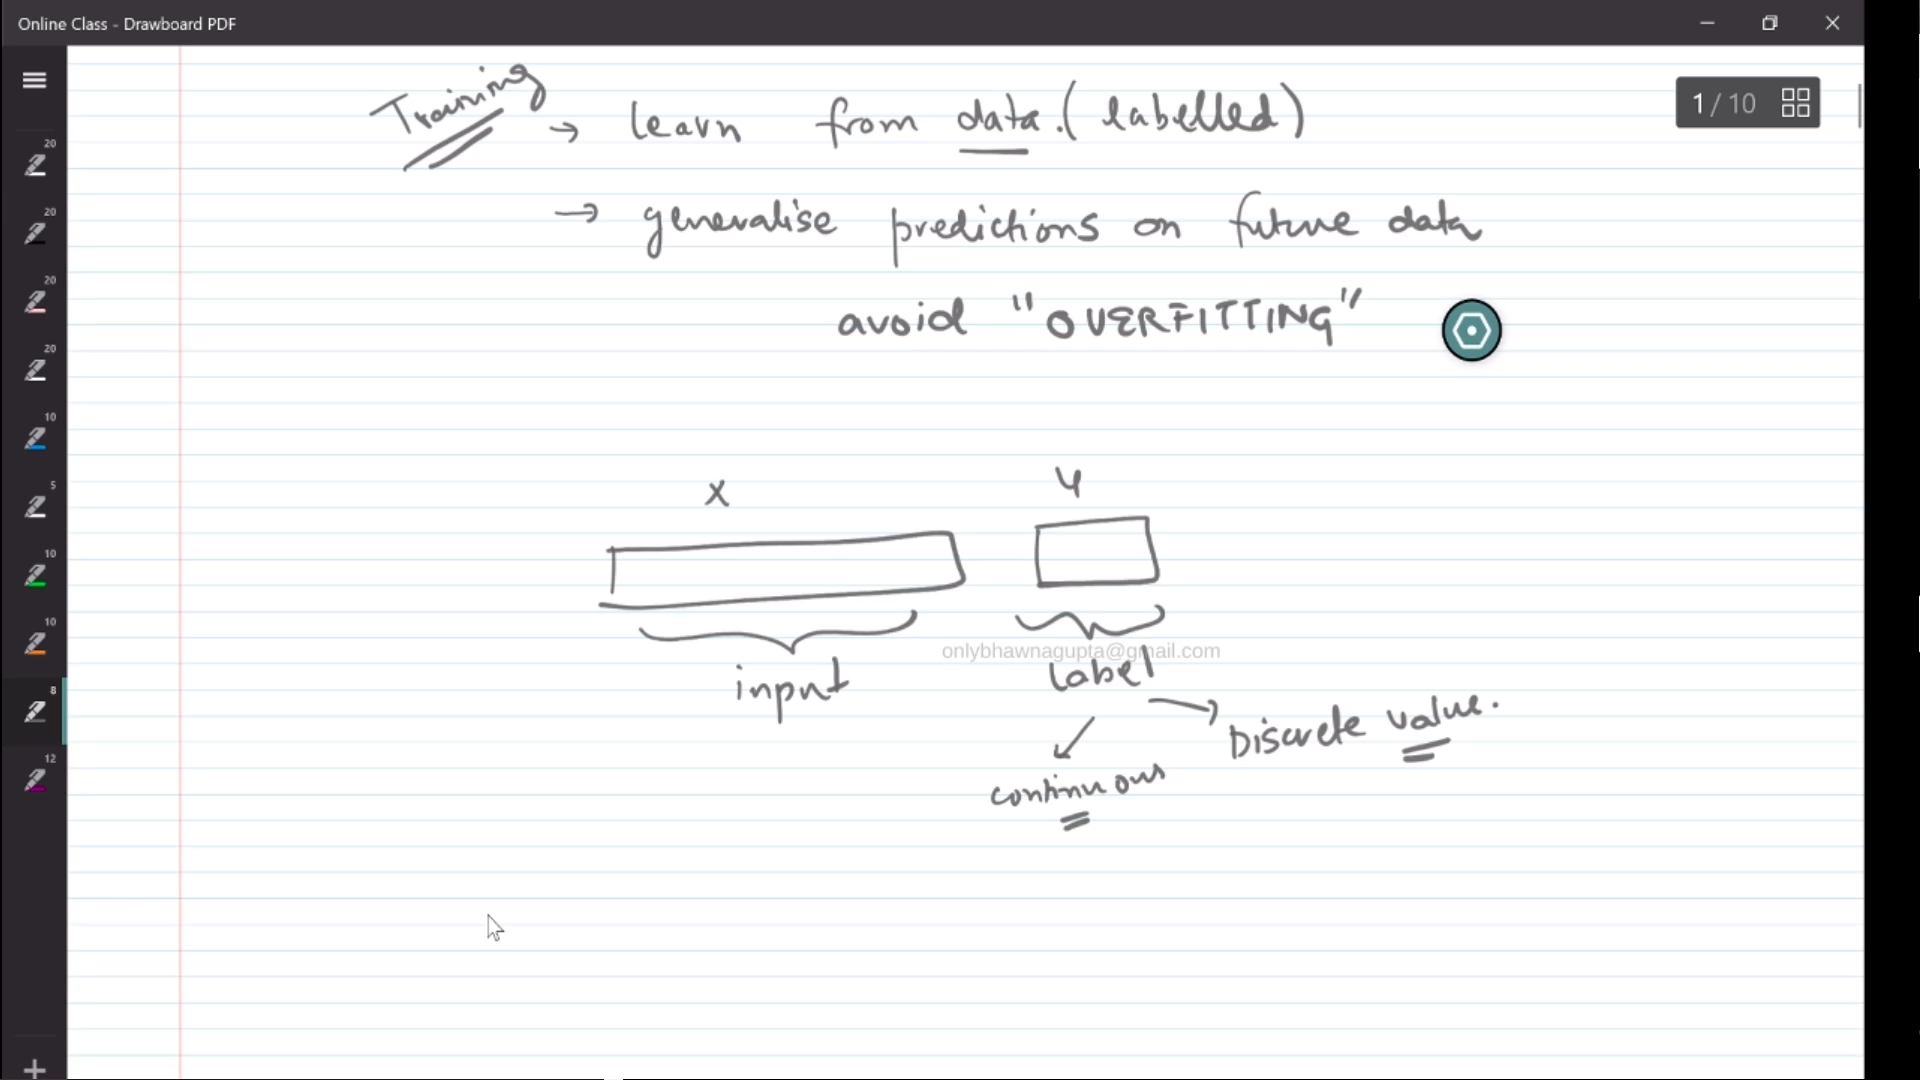 Online Class - Drawboard PDF
1 / 10
20
20
20
20
10
5
10
10
8
12
Training
→ learn from data. (labelled)
→ generalise predictions on future data
avoid "OVERFITTING"
x y
input label
onlybhawnagupta@gmail.com
Discrete value.
continuous